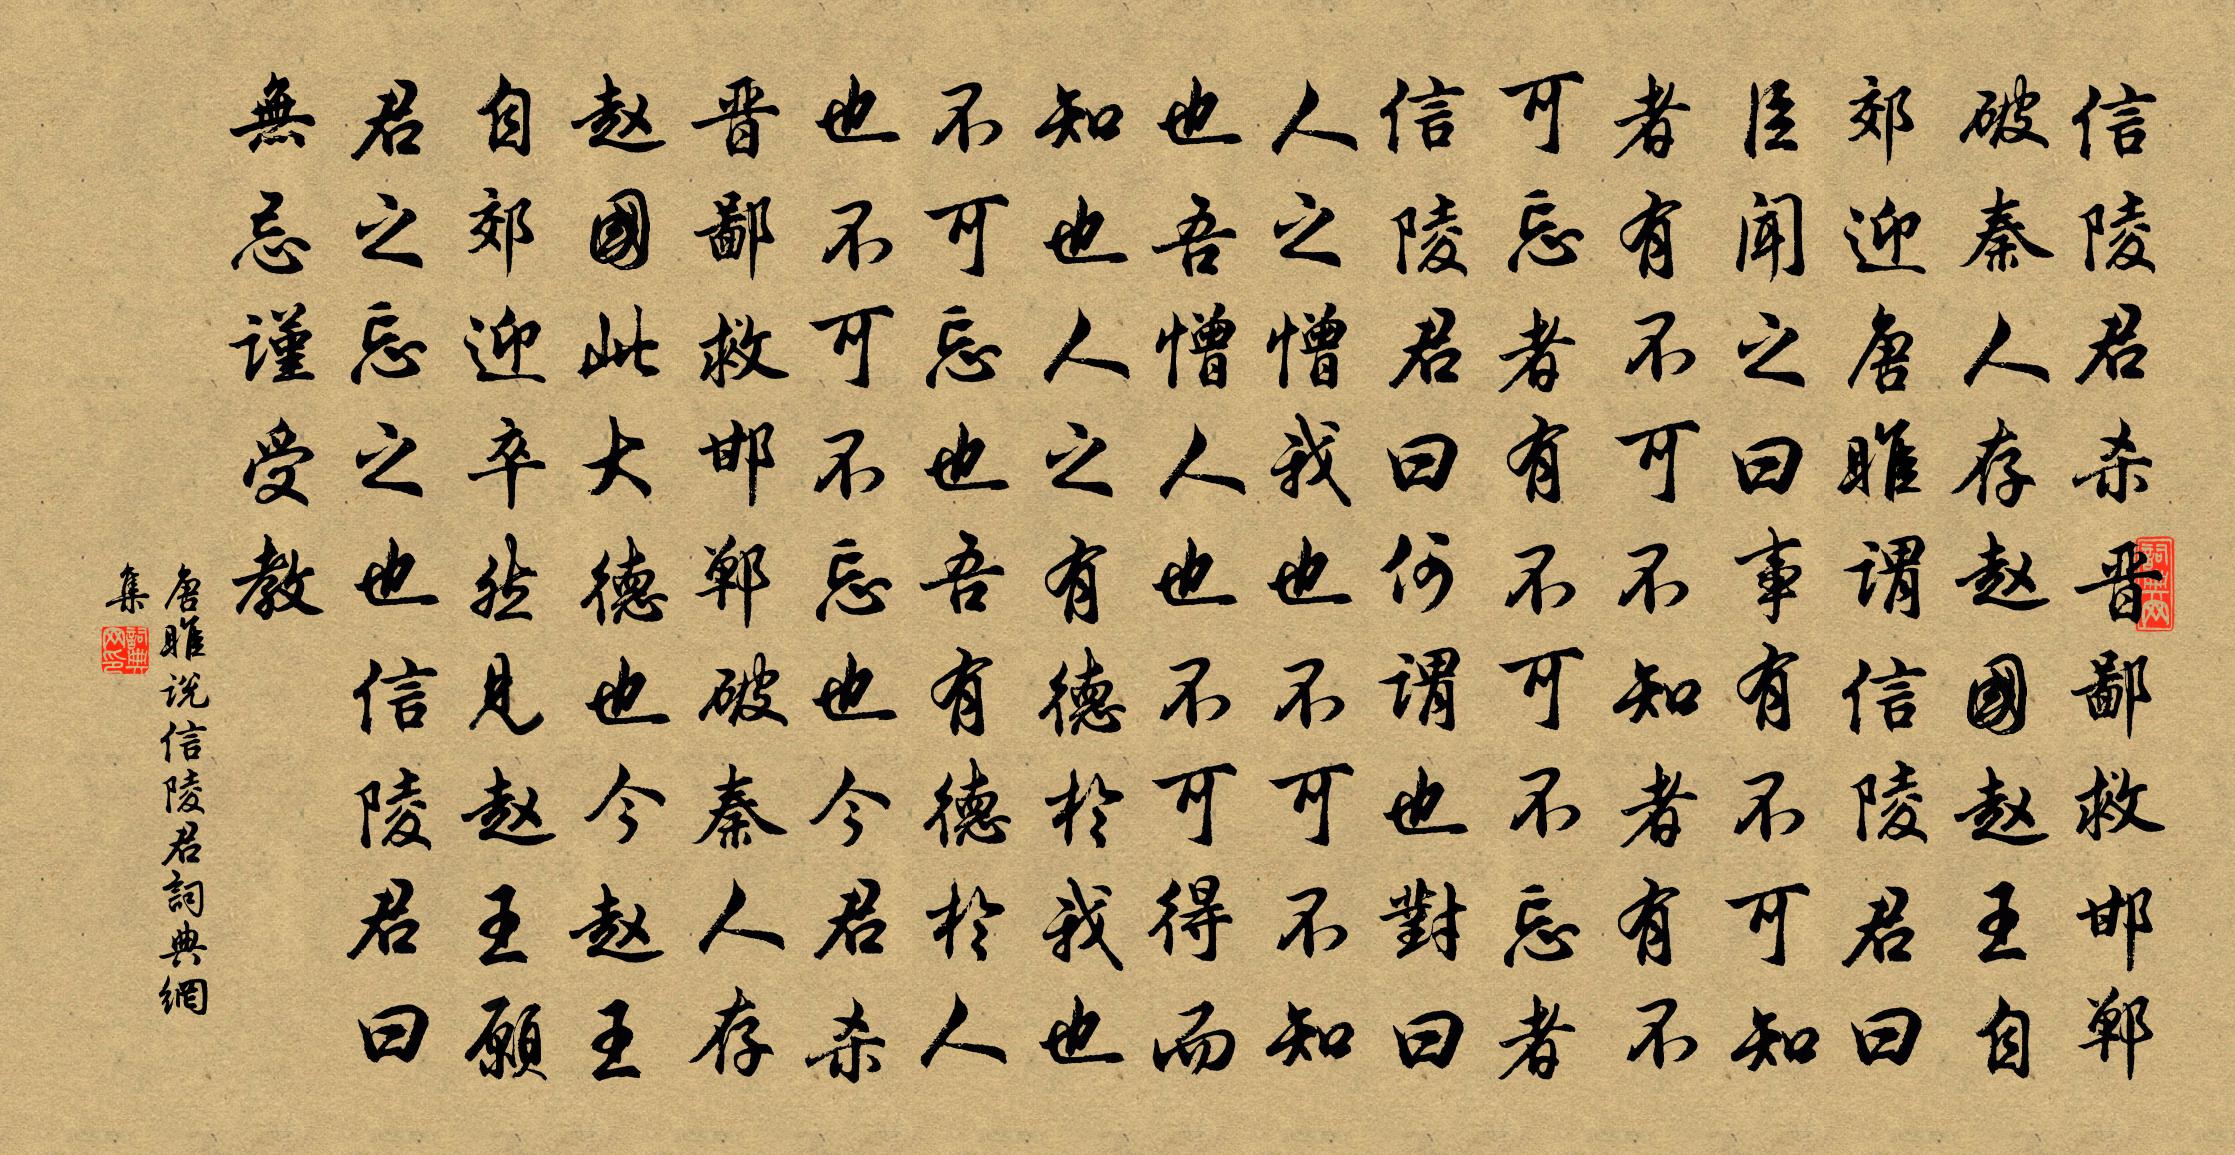 信陵君杀晋鄙救邯郸
破秦人存赵國赵王自
郊迎唐雎谓信陵君曰
臣闻之曰事有不可知
者有不可不知者有不
可忘者有不可不忘者
信陵君曰何谓也對曰
人之憎我也不可不知
也吾憎人也不可得而
知也人之有德於我也
不可忘也吾有德於人
也不可不忘也今君杀
晋鄙救邯郸破秦人存
赵國此大德也今赵王
自郊迎卒然见赵王願
君之忘之也信陵君曰
無忌谨受教
唐雎说信陵君詞典網
集
詞典网
詞典网印